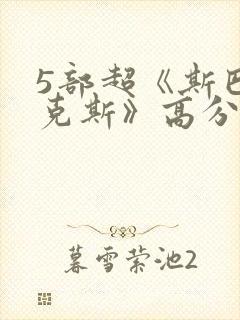 5部超《斯巴
克斯》高分
暮雪萦池2